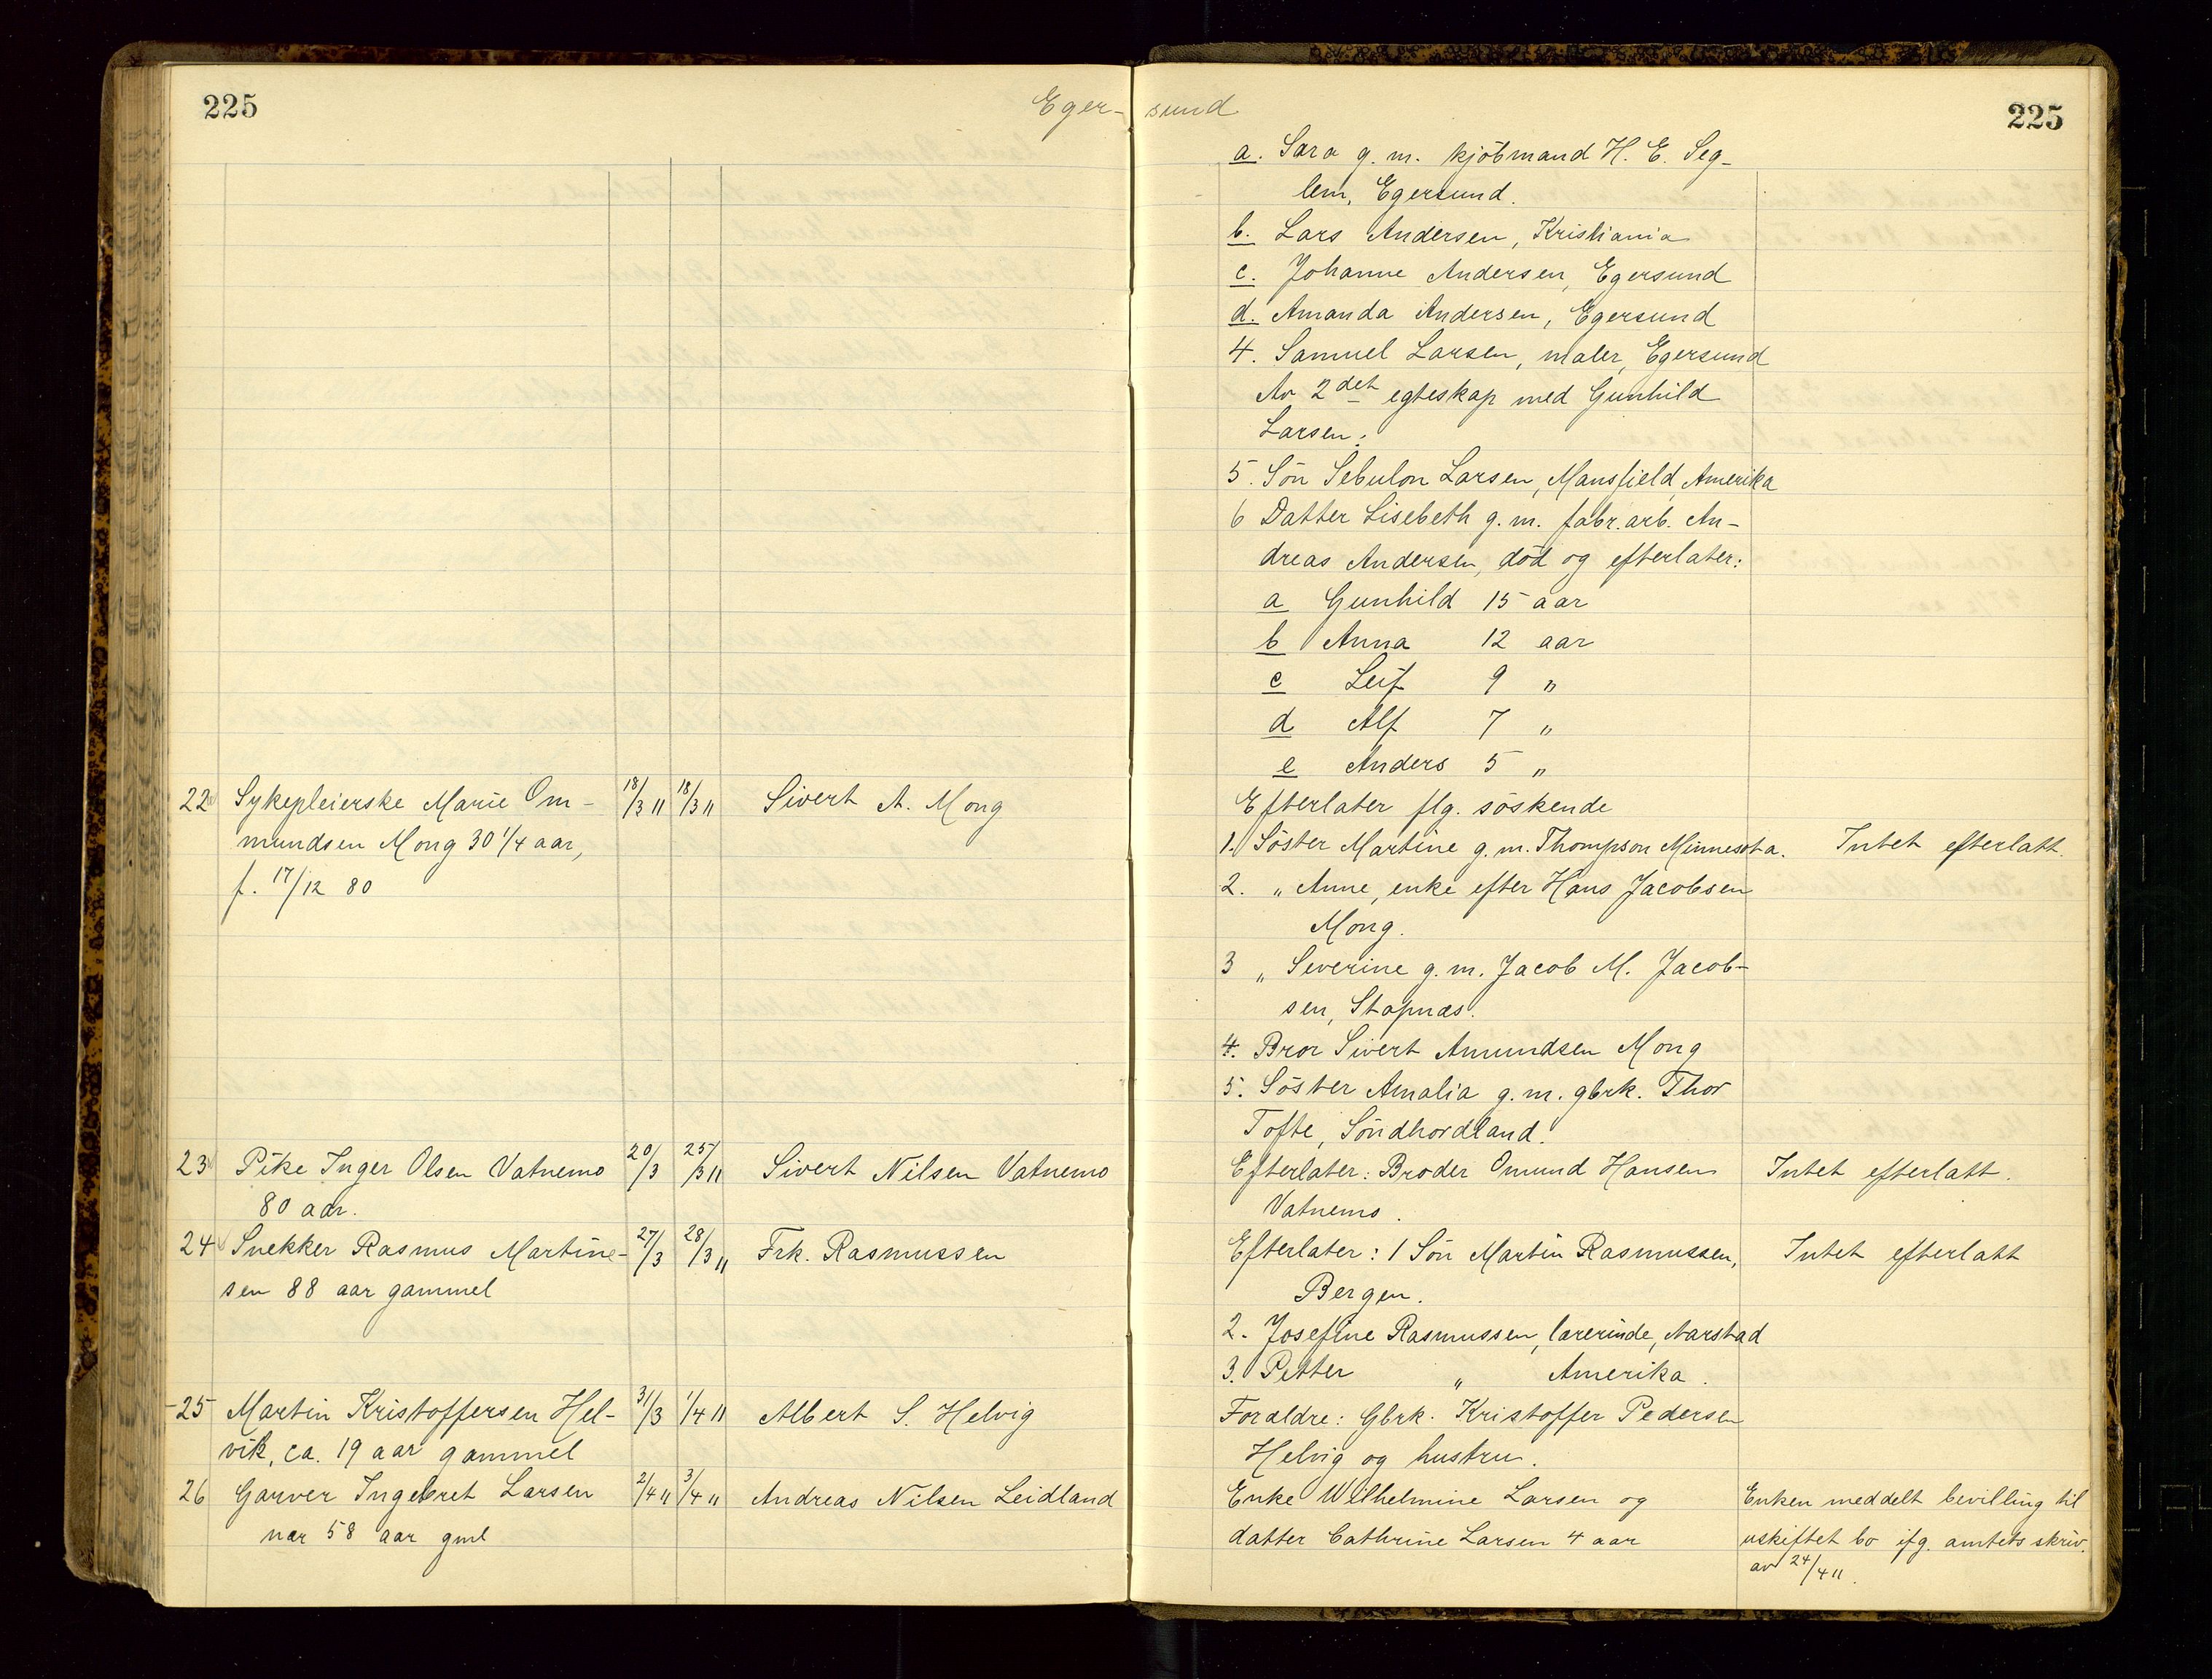 225
Eger-sund
225
a. Sara g. m. kjöbmand H. E. Seg-
lem, Egersund.
b. Lars Andersen, Kristiania
c. Johanne Andersen, Egersund
d. Amanda Andersen, Egersund
4. Samuel Larsen, maler, Egersund
Av 2det egteskap med Gunhild
Larsen:
5. Sön Sebulon Larsen, Mansfield, Amerika
6 Datter Lisebeth g. m. fabr. arb. An-
dreas Andersen, död og efterlater:
a Gunhild 15 aar
b Anna 12 aar
c Leif 9 "
d Alf 7 "
e Anders 5 "
22 Sykepleierske Marie Om-
mundsen Mong 30 1/4 aar,
f. 17/12 80
18/3 11 18/3 11 Sivert A. Mong
Efterlater flg. söskende
1. Söster Martine g. m. Thompson Minnesota.
2. " Anne, enke efter Hans Jacobsen
Mong.
3 " Severine g. m. Jacob M. Jacob-
sen, Stapnæs.
4. Bror Sivert Amundsen Mong
5. Söster Amalia g. m. gbrk. Thor
Tofte, Söndhordland.
Intet efterlatt.
23 Pike Inger Olsen Vatnemo
80 aar.
20/3 25/3 11 Sivert Nilsen Vatnemo
Efterlater: Broder Omund Hansen
Vatnemo.
Intet efterlatt.
24 Snekker Rasmus Martine-
sen 88 aar gammel
27/3 28/3 11 Frk. Rasmussen
Efterlater: 1 Sön Martin Rasmussen,
Bergen.
2. Josefine Rasmussen, lærerinde, Aarstad
3. Petter " Amerika.
Intet efterlatt
25 Martin Kristoffersen Hel-
vik, ca. 19 aar gammel
31/3 1/4 11 Albert S. Helvig
Forældre: Gbrk. Kristoffer Pedersen
Helvig og hustru.
26 Garver Ingebret Larsen
nær 58 aar gml
2/4 11 3/4 11 Andreas Nilsen Leidland
Enke Wilhelmine Larsen og
datter Cathrine Larsen 4 aar
Enken meddelt bevilling til
uskiftet bo ifg. amtets skriv.
av 24/4 11.